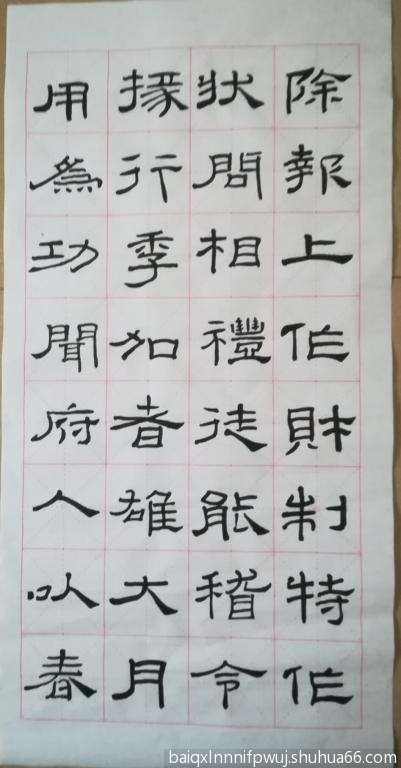 除報上作財制特作
状問相禮徒能稽令
掾行季加者雄大月
用為功聞府人以春
baiqxlnnnifpwuj.shuhua66.com